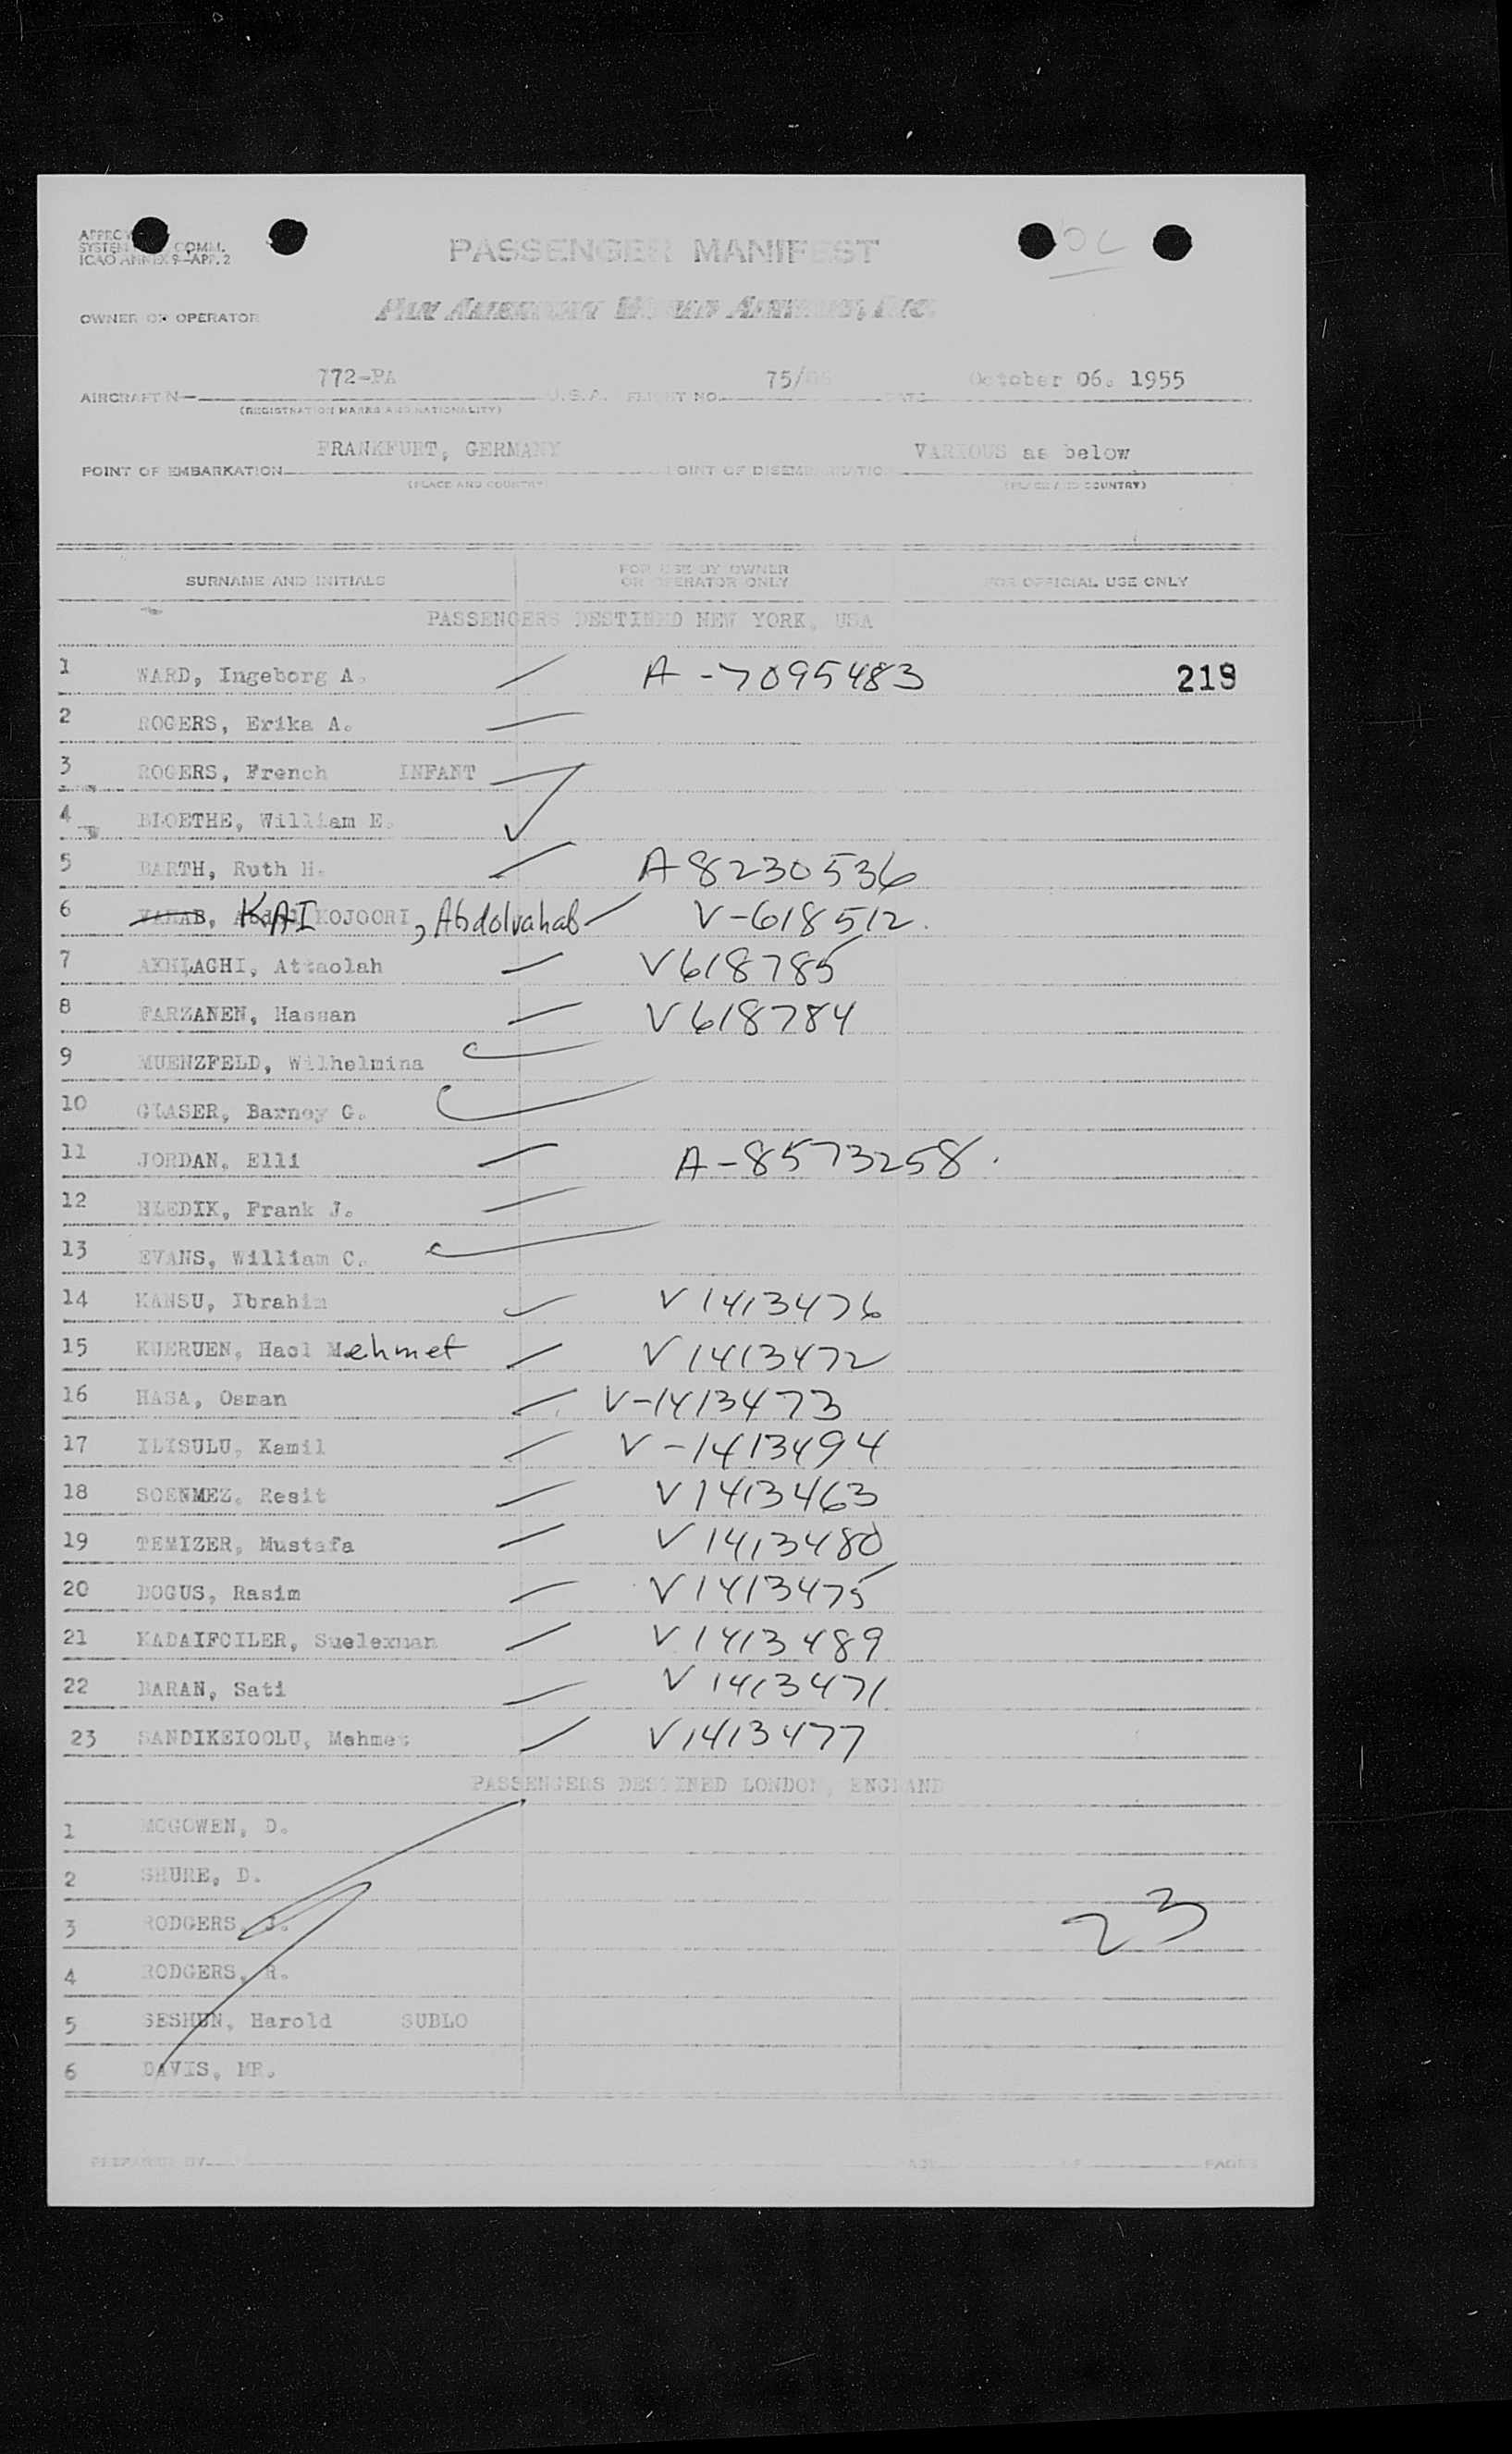 ICAO ANNEX 9-APP. 2
PASSENGER MANIFEST
OWNER OR OPERATOR
PAN AMERICAN WORLD AIRWAYS, INC.
772-PA 75/ October 06. 1955
AIRCRAFT N— U.S.A. FLIGHT NO. DATE
(REGISTRATION MARKS AND NATIONALITY)
FRANKFURT, GERMANY VARIOUS as below
POINT OF EMBARKATION POINT OF DISEMBARKATION
(PLACE AND COUNTRY) (PLACE AND COUNTRY)
SURNAME AND INITIALS FOR USE BY OWNER OR OPERATOR ONLY FOR OFFICIAL USE ONLY
PASSENGERS DESTINED NEW YORK, USA
1 WARD, Ingeborg A. A-7095483 219
2 ROGERS, Erika A.
3 ROGERS, French INFANT
4 BLOETHE, William E.
5 BARTH, Ruth H. A8230536
6 VAHAB, KAI KOJOORI, Abdolvahab V-618512.
7 AKHLAGHI, Attaolah V618785
8 FARZANEN, Hassan V618784
9 MUENZFELD, Wilhelmina
10 GLASER, Barney G.
11 JORDAN, Elli A-8573258.
12 HLEDIK, Frank J.
13 EVANS, William C.
14 KANSU, Ibrahim V1413476
15 KUERUEN, Haci Mehmet V1413472
16 HASA, Osman V-1413473
17 ILISULU, Kamil V-1413494
18 SOENMEZ. Resit V1413463
19 TEMIZER, Mustafa V1413480
20 DOGUS, Rasim V1413475
21 KADAIFCILER, Suelexman V1413489
22 BARAN, Sati V1413471
23 SANDIKEIOOLU, Mehmet V1413477
PASSENGERS DESTINED LONDON, ENGLAND
1 MCGOWEN, D.
2 SHURE, D.
3 RODGERS, J. 23
4 RODGERS, R.
5 SESHUN, Harold SUBLO
6 DAVIS, MR.
PREPARED BY PAGE OF PAGES